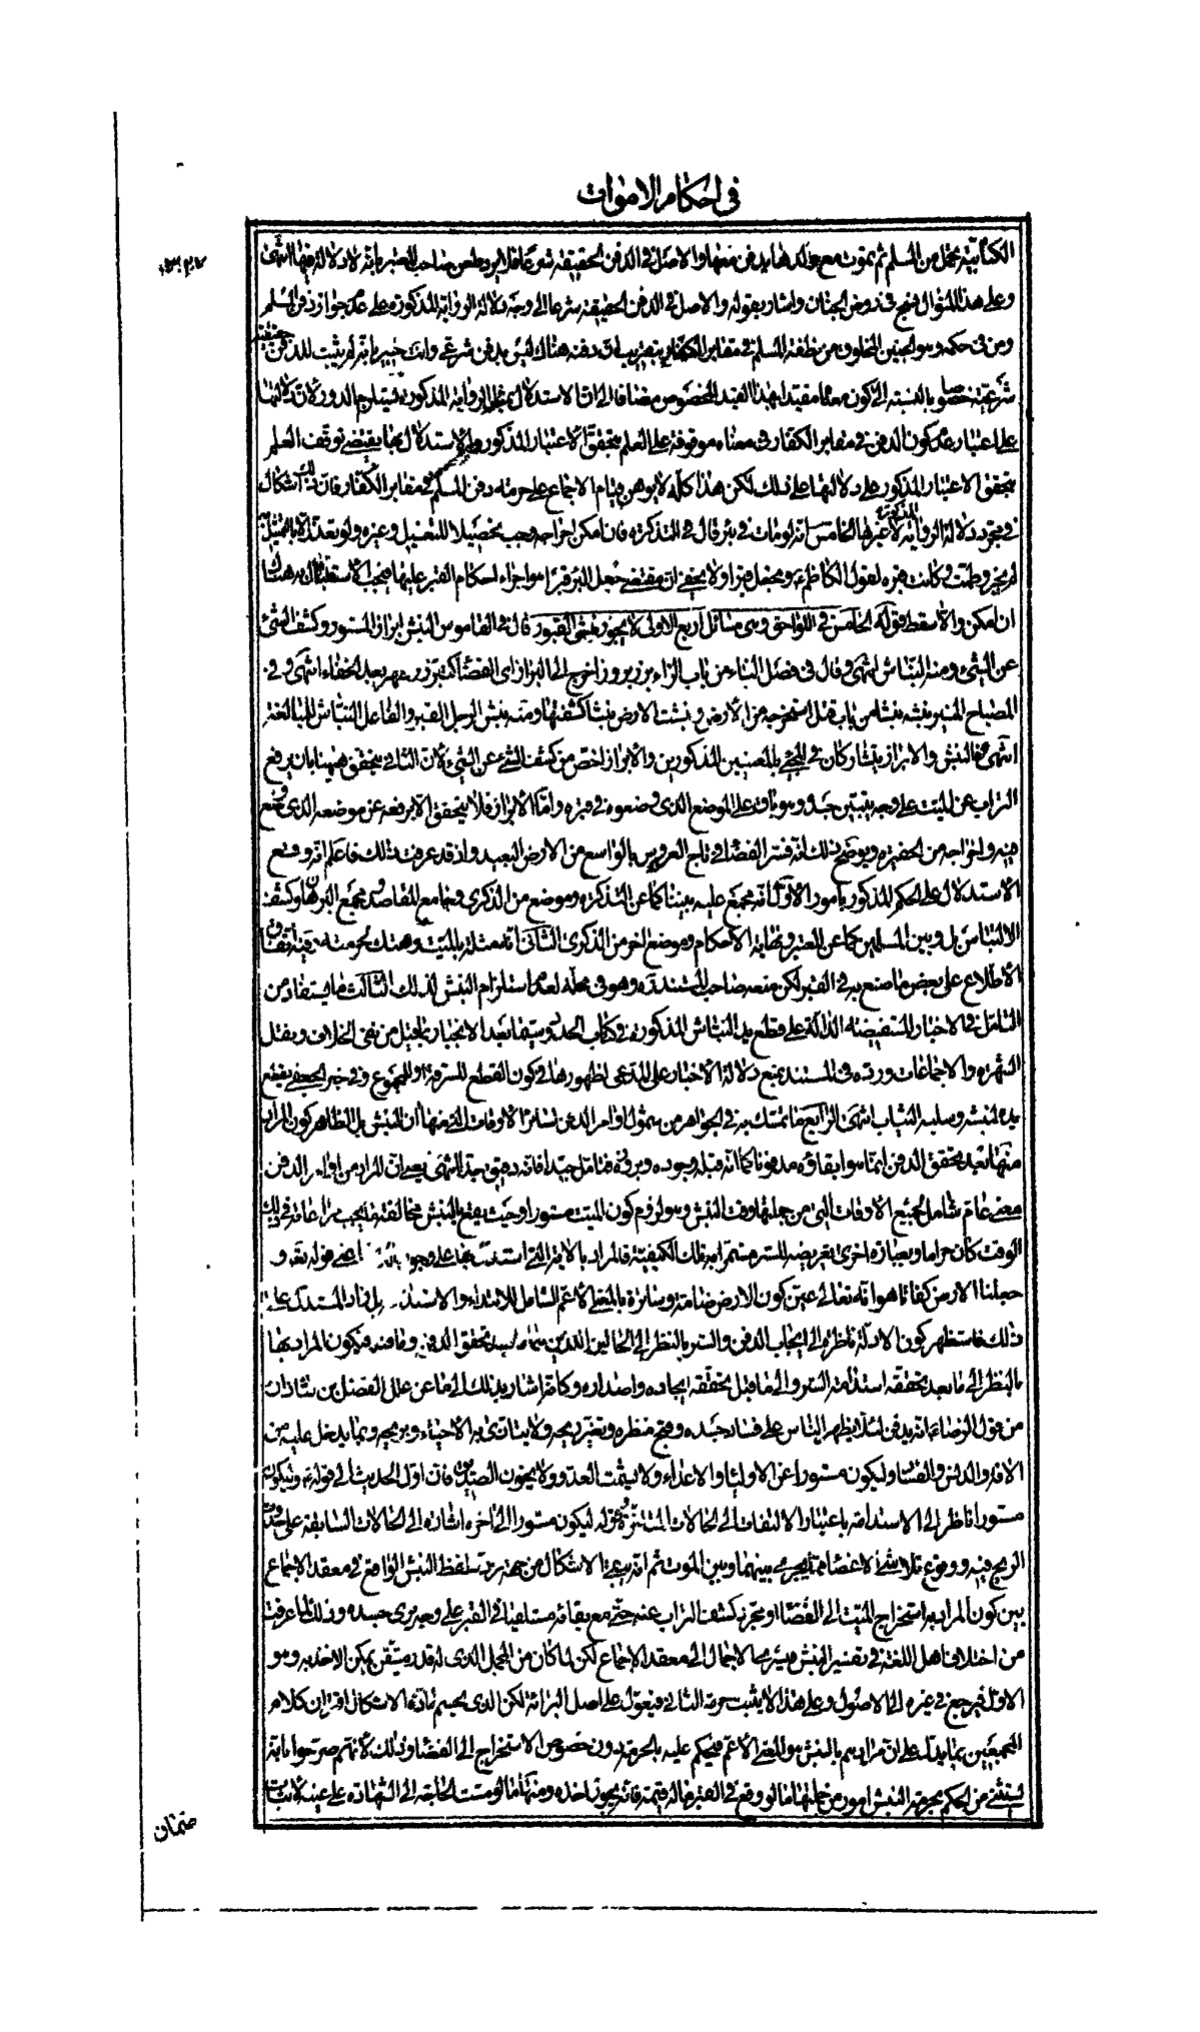 في احكام الاموات
الكتابية تحمل من المسلم ثم تموت مع ولدها يدفن معها والاصل في الدفن الحقيقة شرعا صاحب المعتبر بانه لا دلالة فيها انتهى
وعلى هذا المنوال نسج في روض الجنان واشار بقوله والاصل في الدفن الحقيقة شرعا الى وجه دلالة الرواية المذكورة على عدم جواز دفن المسلم
ومن في حكمه وهو الجنين المخلوق من نطفة المسلم في مقابر الكفار بتقريب ان دفنه هناك ليس بدفن شرعي وانت خبير بانه لم يثبت للدفن حقيقة
شرعية خصوصا بالنسبة الى كون معناه مقيدا بهذا القيد المخصوص مضافا الى ان الاستدلال بمثل الرواية المذكورة يستلزم الدور لان دلالتها
على اعتبار عدم كون الدفن في مقابر الكفار في معناه موقوفة على العلم بتحقق الاعتبار المذكور والاستدلال بها يقتضي توقف العلم
بتحقق الاعتبار المذكور على دلالتها على ذلك لكن هذا كله لا يوهن قيام الاجماع على حرمة دفن المسلم في مقابر الكفار فان الاشكال
في مجرد دلالة الرواية المذكورة لا غيرها الخامس انه لو مات في بئر قال في التذكرة فان امكن اخراجه وجب تحصيلا للتغسيل وغيره ولو تعذر الا بالتمثيل به
لم يجز وطمت وكانت قبره لقول الكاظم ع ويجعل قبرا ولا يخفى ان مقتضى جعل البئر قبرا هو اجراء احكام القبر عليها فيجب الاستقبال به هناك
ان امكن والا سقط قوله الخامس في اللواحق وهي مسائل اربع الاولى لا يجوز نبش القبور قال في القاموس النبش ابراز المستور وكشف الشيء
عن الشيء ومنه النباش انتهى وقال في فصل الباء من باب الزاء برز بروزا خرج الى البراز اى الفضاء كتبرز وظهر بعد الخفاء انتهى وفي
المصباح المنير نبشته نبشا من باب قتل استخرجته من الارض ونبشت الارض نبشا كشفتها ومنه نبش الرجل القبر والفاعل النباش للمبالغة
انتهى فالنبش والابراز يتشاركان في المجيء بالمعنيين المذكورين والابراز اخص من كشف الشيء عن الشيء لان الثاني يتحقق هيهنا بان يرفع
التراب عن الميت على وجه يتبين جسده وهو باق على الموضع الذي وضعوه في قبره واما الابراز فلا يتحقق الا برفعه عن موضعه الذي وضع
فيه واخراجه من الحفيرة ويوضح ذلك انه فسر الفضاء في تاج العروس بالواسع من الارض البعيد واذ قد عرفت ذلك فاعلم انه وقع
الاستدلال على الحكم المذكور بامور الاول انه مجمع عليه بيننا كما عن التذكرة وموضع من الذكرى وجامع المقاصد ومجمع البرهان وكشف
الالتباس بل وبين المسلمين كما عن المعتبر ونهاية الاحكام وموضع اخر من الذكرى الثاني انه مثلة بالميت وهتك لحرمته
الاطلاع على بعض ما صنع به في القبر لكن منعه صاحب المستند ره وهو في محله لعدم استلزام النبش لذلك الثالث ما يستفاد من
التامل في الاخبار المستفيضة الدالة على قطع يد النباش المذكورة في كتاب الحدود سيما بعد الانجبار بما قيل من نفى الخلاف ونقل
الشهرة والاجماعات ورده في المستند بمنع دلالة الاخبار على المدعى لظهورها في كون القطع للسرقة او للمجموع وفي خبر الجعفي يقطع
يده لنبشه وسلبه الثياب انتهى الرابع ما تمسك به في الجواهر من شمول اوامر الدفن لسائر الاوقات التي منها ان النبش بل الظاهر كون المراد
منها بعد تحقق الدفن انما هو ابقاؤه مدفونا كما انه قبله وجوده وبروزه فتامل جيدا فانه دقيق جدا انتهى يعني ان المراد من اوامر الدفن
معنى عام شامل لجميع الاوقات التي من جملتها وقت النبش وهو لزوم كون الميت مستورا وحيث يقع بالنبش مخالفة ما يجب مراعاته في ذلك
الوقت كان حراما وبعبارة اخرى يفرضه الستر مستمرا بتلك الكيفية فالمراد بالاية التي استدل بها على وجوب اعنى قوله تعالى و
جعلنا الارض كفاتا هو انه تعالى عين كون الارض ضامة وساترة بالمعنى الاعم الشامل للابتداء والاستدامة بل افاد المستدل على
ذلك فاستظهر كون الادلة ناظرة الى ايجاب الدفن والستر بالنظر الى الحالين اللذين هما ما بعد تحقق الدفن وما قبله فيكون المراد بها
بالنظر الى ما بعد تحققه استدامة الستر والى ما قبل تحققه ايجاده واصداره وكانه اشار بذلك الى ما عن علل الفضل بن شاذان
من قول الرضا ع انه يدفن لئلا يظهر الناس على فساد جسده وقبح منظره وتغير ريحه ولا يتاذى به الاحياء وبريحه وبما يدخل عليه من
الافة والدنس والفساد وليكون مستورا عن الاولياء والاعداء ولا يشمت العدو ولا يحزن الصديق فان اول الحديث الى قوله ع وليكون
مستورا ناظر الى الاستدامة باعتبار الالتفات الى الحالات المتاخرة وقوله ليكون مستورا الى اخره اشارة الى الحالات السابقة على
الريح فيه ووقوع تلاشي الاعضاء مما يجري بينهما وبين الموت ثم انه يبقى الاشكال من جهة تردد لفظ النبش الواقع في معقد الاجماع
بين كون المراد به استخراج الميت الى الفضاء او مجرد كشف التراب عنه حتى مع بقائه مستلقيا في القبر على وجه يرى جسده وذلك لما عرفت
من اختلاف اهل اللغة في تفسير النبش فيسري الاجمال الى معقد الاجماع لكن لما كان من المجمل الذي له قدر متيقن يمكن الاخذ به وهو
الاول فيرجع في غيره الى الاصول وعلى هذا لا يثبت حرمة الثاني فيعول على اصل البرائة لكن الذي يحسم مادة الاشكال اقتران كلام
المجمعين بما يدل على ان مرادهم بالنبش هو المعنى الاعم فيحكم عليه بالحرمة دون خصوص الاستخراج الى الفضاء وذلك لانهم صرحوا بانه
يستثنى من الحكم بحرمة النبش امور من جملتها ما لو وقع في القبر ماله قيمة فانه يجوز اخذه ومنها ما لو مست الحاجة الى الشهادة على عينه لاثبات
ضمان